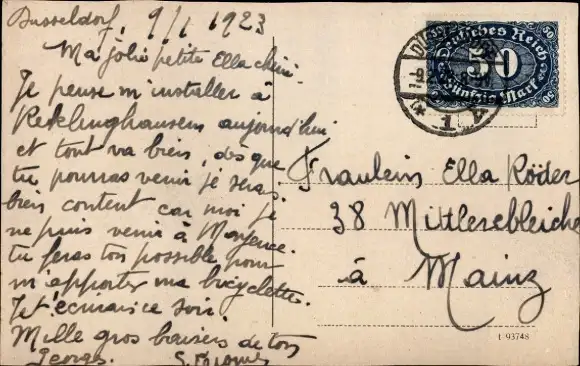 Dusseldorf, 9/1 1923
Ma jolie petite Ella chérie.
Je pense m'installer à
Recklinghausen aujourd'hui
et tout va bien, dès que
tu pourras venir je serai
bien content car moi je
ne puis venir à Mayence.
tu feras ton possible pour
m'apporter ma bicyclette.
Je t'écrirais ce soir.
Mille gros baisers de ton
Georges.
Deutsches Reich
50
50
50
Fünfzig Mark
1
Fraulein Ella Röder
38 Mittlerebleiche
à Mainz
t 93748